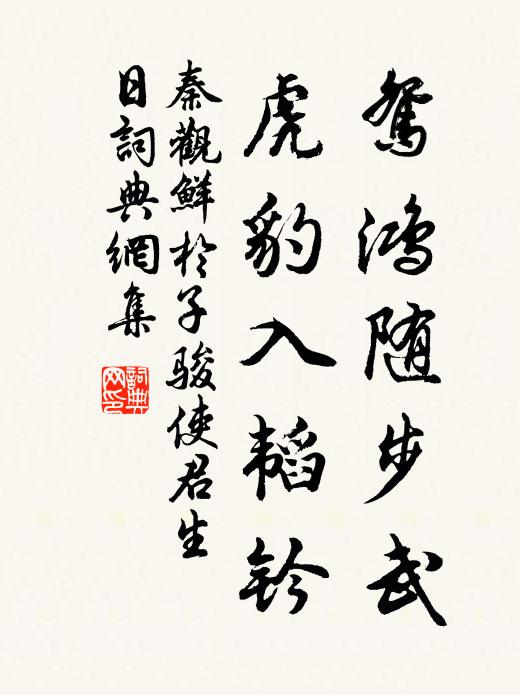 鴛鴻随步武
虎豹入韬鈐
秦觀鮮於子駿使君生
日詞典網集
詞典网印